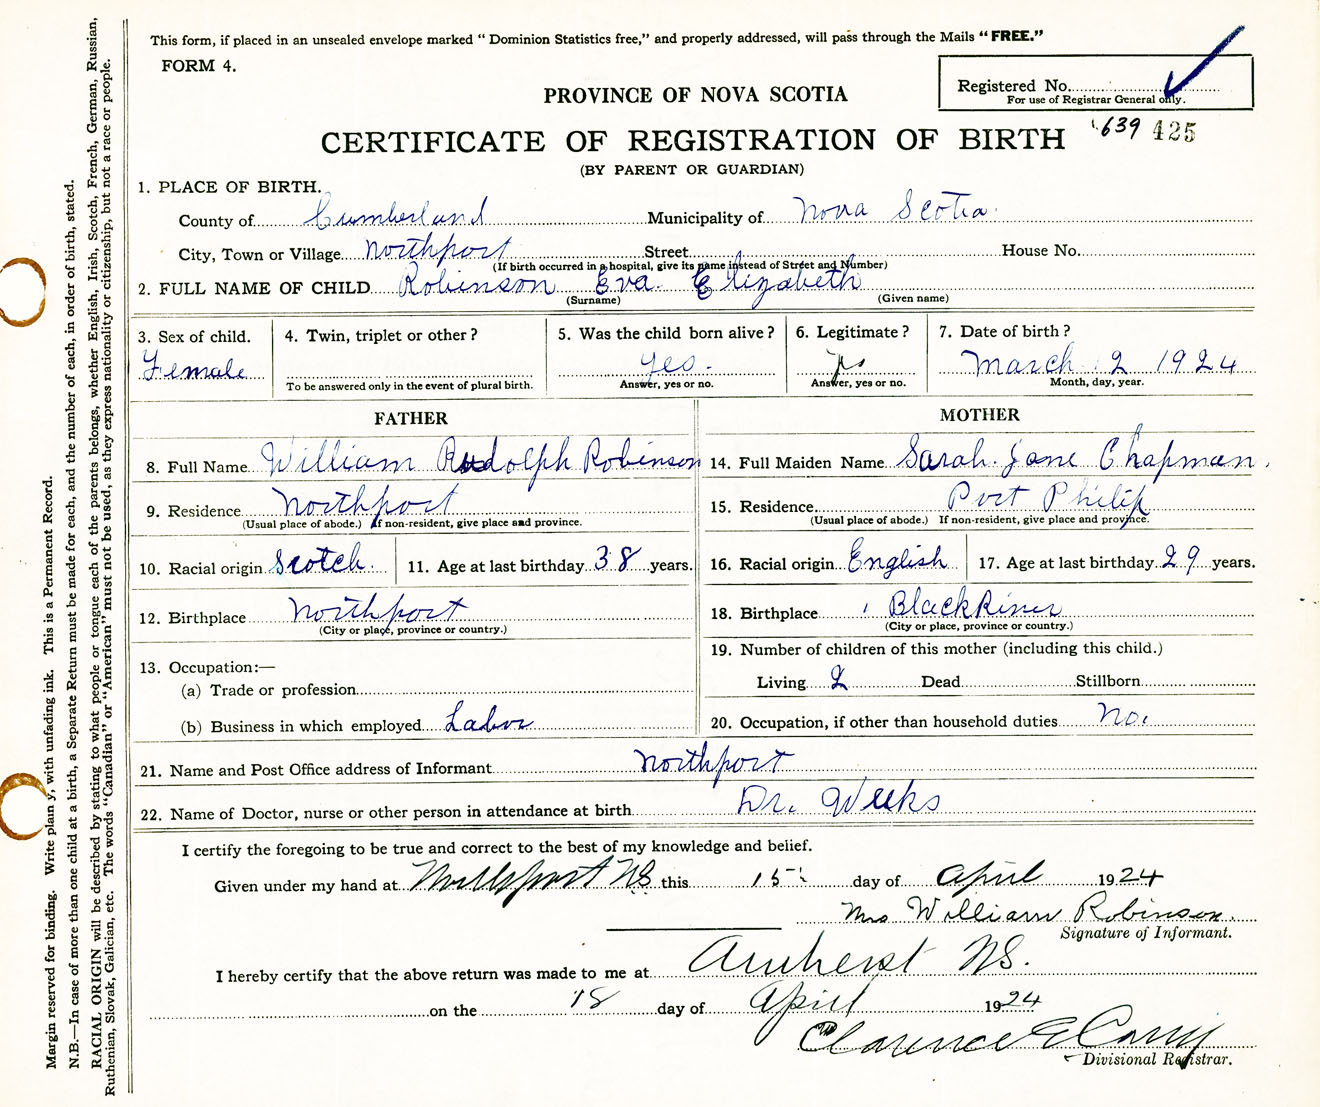 This form, if placed in an unsealed envelope marked " Dominion Statistics free," and properly addressed, will pass through the Mails " FREE."
FORM 4.
Registered No.
For use of Registrar General only.
PROVINCE OF NOVA SCOTIA
639 425
CERTIFICATE OF REGISTRATION OF BIRTH
(BY PARENT OR GUARDIAN)
1. PLACE OF BIRTH.
County of Cumberland Municipality of Nova Scotia
City, Town or Village Northport Street House No.
(If birth occurred in a hospital, give its name instead of Street and Number)
2. FULL NAME OF CHILD Robinson Eva Elizabeth
(Surname) (Given name)
3. Sex of child. 4. Twin, triplet or other ? 5. Was the child born alive ? 6. Legitimate ? 7. Date of birth ?
Female yes. yes March 2 1924
To be answered only in the event of plural birth. Answer, yes or no. Answer, yes or no. Month, day, year.
FATHER MOTHER
8. Full Name William Rudolph Robinson 14. Full Maiden Name Sarah Jane Chapman.
9. Residence Northport 15. Residence Port Philip
(Usual place of abode.) If non-resident, give place and province. (Usual place of abode.) If non-resident, give place and province.
10. Racial origin Scotch. 11. Age at last birthday 38 years. 16. Racial origin English 17. Age at last birthday 29 years.
12. Birthplace Northport 18. Birthplace Black River
(City or place, province or country.) (City or place, province or country.)
13. Occupation:— 19. Number of children of this mother (including this child.)
(a) Trade or profession Living 2 Dead Stillborn
(b) Business in which employed Labor 20. Occupation, if other than household duties No.
21. Name and Post Office address of Informant Northport
22. Name of Doctor, nurse or other person in attendance at birth Dr. Weeks
I certify the foregoing to be true and correct to the best of my knowledge and belief.
Given under my hand at Northport NS this 15 day of April 1924
Mrs William Robinson.
Signature of Informant.
I hereby certify that the above return was made to me at Amherst NS.
on the 18 day of April 1924
Clarence E
Divisional Registrar.
Margin reserved for binding. Write plainly, with unfading ink. This is a Permanent Record.
N.B.—In case of more than one child at a birth, a Separate Return must be made for each, and the number of each, in order of birth, stated.
RACIAL ORIGIN will be described by stating to what people or tongue each of the parents belongs, whether English, Irish, Scotch, French, German, Russian,
Ruthenian, Slovak, Galician, etc. The words "Canadian" or "American" must not be used, as they express nationality or citizenship, but not a race or people.